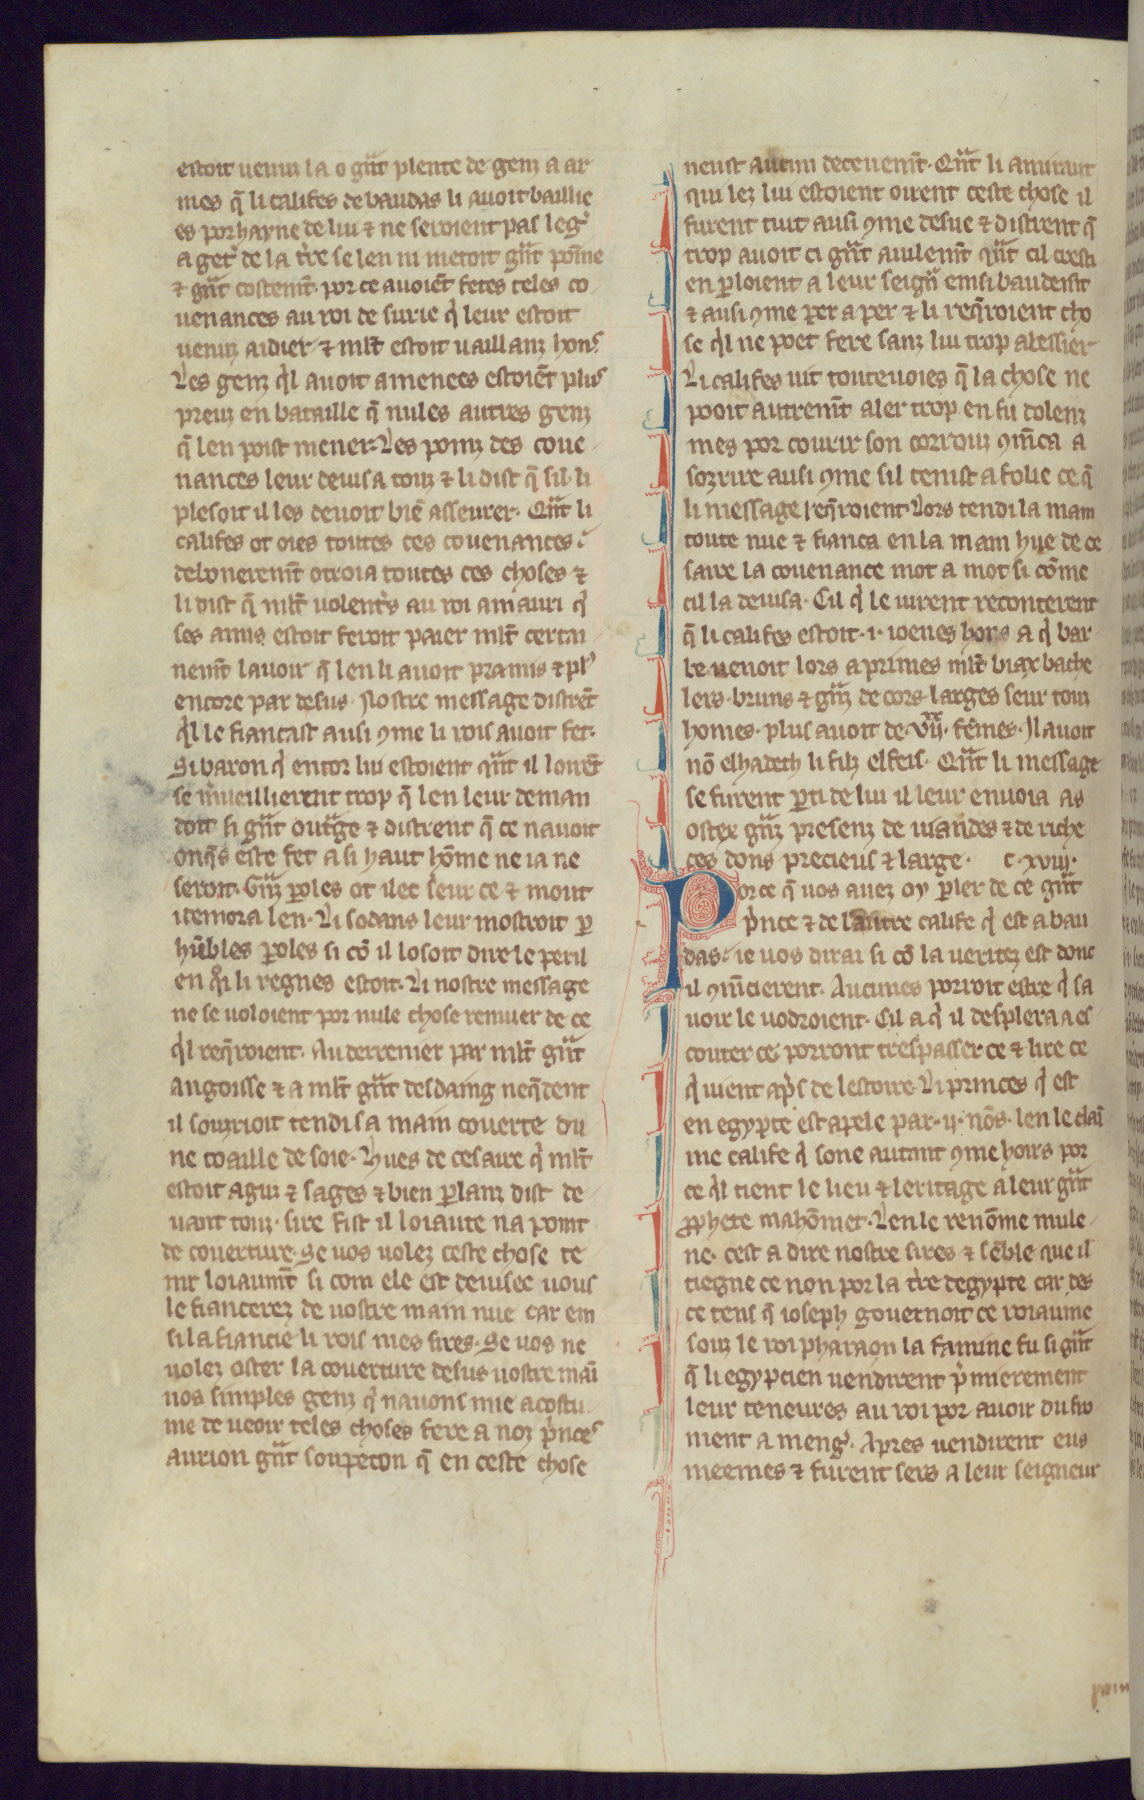 estoit uenuz la o gͣnt plente de genz a ar
mes q̃ li califes de baudas li auoit baillie
es por hayne de lui ⁊ ne seroient pas leg̾
a get̾ de la t̾re se len ni metoit gͣnt poĩne
⁊ gͣnt costem̃t. por ce auoiẽt fetes teles co
uenances au roi de surie qͥ leur estoit
uenuz aidier ⁊ ml̃t estoit uaillanz hons
Les genz qͥl auoit amenees estoiẽt plus
preuz en bataille q̃ nules autres genz
q̃ len poist mener. Les poinz des coue
nances leur deuisa touz ⁊ li dist q̃ sil li
plesoit il les deuoit biẽ asseurer. Qͣnt li
califes ot oies toutes ces couenances
debonerem̃t otroia toutes ces choses ⁊
li dist q̃ ml̃t uolent̾s au roi amauri qͥ
ses amis estoit feroit paier ml̃t certai
nem̃t lauoir q̃ len li auoit pramis ⁊ plꝰ
encore par desus. Nostre message distrẽt
qͥl le fiancast ausi ꝯme li rois auoit fet.
Si baron qͥ entor lui estoient qͣnt il loirẽt
se mͥueillierent trop q̃ len leur deman
doit si gͣnt outͣge ⁊ distrent q̃ ce nauoit
onq̃s este fet a si haut hõme ne ia ne
seroit. Gͣnz ꝑoles ot ilec seur ce ⁊ mout
i demora len. Li sodans leur mostroit ꝑ
hũbles ꝑoles si cõ il losoit dire le peril
en qͦi li regnes estoit. Li nostre message
ne se uoloient por nule chose remuer de ce
qͥl req̃roient. Au derrenier par ml̃t gͣnt
angoisse ⁊ a ml̃t gͣnt desdaing neq̃dent
il souzrioit tendi sa main couerte du
ne toaille de soie. Hues de cesaire qͥ ml̃t
estoit aguz ⁊ sages ⁊ bien ꝑlanz dist de
uant touz. sire fist il loiaute na point
de couerture. Se uos uolez ceste chose te
nir loiaum̃t si com ele est deuisee uous
le fiancerez de uostre main nue car em
si la fiancie li rois mes sires. Se uos ne
uolez oster la couerture desus uostre mai᷑
nos simples genz qͥ nauons mie acostu
me de ueoir teles choses fere a noz pͥnces
aurion gͣnt soupecon q̃ en ceste chose
neust aucun deceuem̃t. Qͣnt li amiraut
qui lez lui estoient oirent ceste chose il
furent tuit ausi ꝯme desue ⁊ distrent q̃
trop auoit ci gͣnt auilem̃t qͣnt cil cresti
en ꝑloient a leur seign̾ emsi baudem̃t
⁊ ausi ꝯme per a per ⁊ li req̃roient cho
se qͥl ne poet fere sanz lui trop abessier
Li califes uit touteuoies q̃ la chose ne
pooit autrem̃t aler trop en fu dolenz
mes por couurir son corrouz ꝯm̃ca a
sozrire ausi ꝯme sil tenist a folie ce q̃
li message req̃roient. Lors tendi la main
toute nue ⁊ fianca en la main hue de ce
saire la couenance mot a mot si cõme
cil la deuisa. Cil qͥ le uirent reconterent
q̃ li califes estoit .i. ioenes hons a qͥ bar
be uenoit lors aprimes ml̃t biax bache
lers. bruns ⁊ gͣnz de cors. larges seur touz
homes. plus auoit de .vii. fẽmes. Il auoit
nõ elhadeth li filz elfeis. Qͣnt li message
se furent ꝑti de lui il leur enuoia as
ostex gͣnz presenz de uiandes ⁊ de riche
ces dons precieus ⁊ large. c. xviij.
Porce q̃ uos auez oy ꝑler de ce gͣnt
pͥnce ⁊ de lautre calife qͥ est a bau
das. ie uos dirai si cõ la ueritez est dont
il ꝯm̃cierent. Aucunes porroit estre qͥ sa
uoir le uodroient. Cil a qͥ il desplera a es
couter ce porront trespasser ce ⁊ lire ce
qͥ uient apͥs de lestoire. Li princes qͥ est
en egypte est apele par .ij. nõs. len le clai᷑
me calife qͥ sone autant ꝯme hoirs por
ce qͥl tient le lieu ⁊ leritage a leur gͣnt
ꝓphete mahõmet. Len le renõme mule
ne. cest a dire nostre sires ⁊ sẽble que il
tiegne ce non por la t̾re degypte car des
ce tens q̃ ioseph gouernoit ce roiaume
souz le roi pharaon la famine fu si gͣnt
q̃ li egypcien uendirent pͥmierement
leur teneures au roi por auoir du fro
ment a meng̾. Apres uendirent eus
meemes ⁊ furent sers a leur seigneur